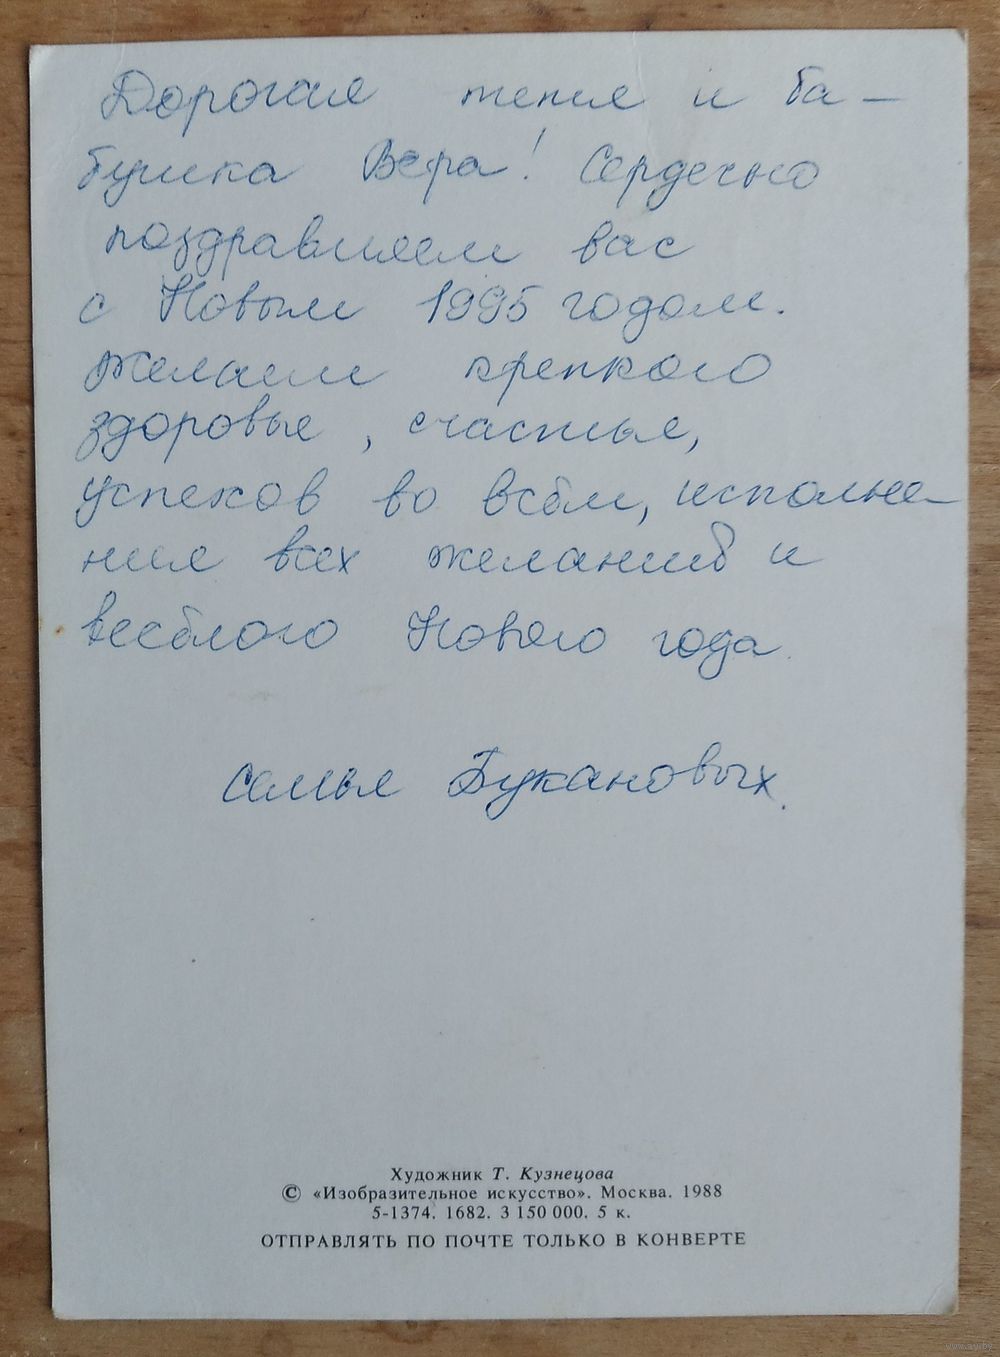 Дорогая тетя и ба-
бушка Вера! Сердечно
поздравляем вас
с Новым 1995 годом.
Желаем крепкого
здоровья, счастья,
успехов во всём, исполне-
ния всех желаний и
весёлого Нового года.
Семья Букановых.
Художник Т. Кузнецова
© «Изобразительное искусство». Москва. 1988
5-1374. 1682. 3 150 000. 5 к.
ОТПРАВЛЯТЬ ПО ПОЧТЕ ТОЛЬКО В КОНВЕРТЕ
www.ay.by